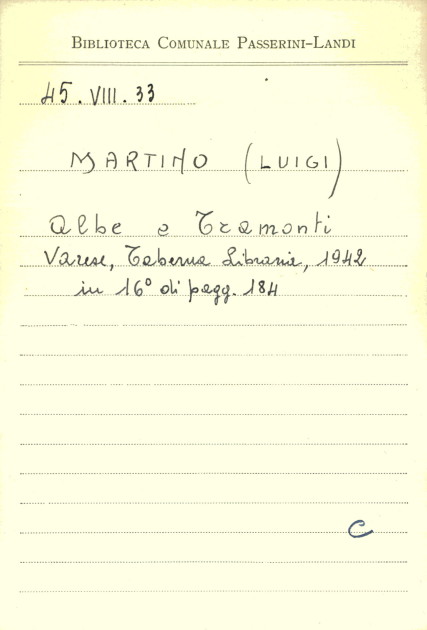 BIBLIOTECA COMUNALE PASSERINI-LANDI
45.VIII.33
MARTINO (LUIGI)
Albe e Tramonti
Varese, Taberna Libraria, 1942
in 16° di pagg. 184
C